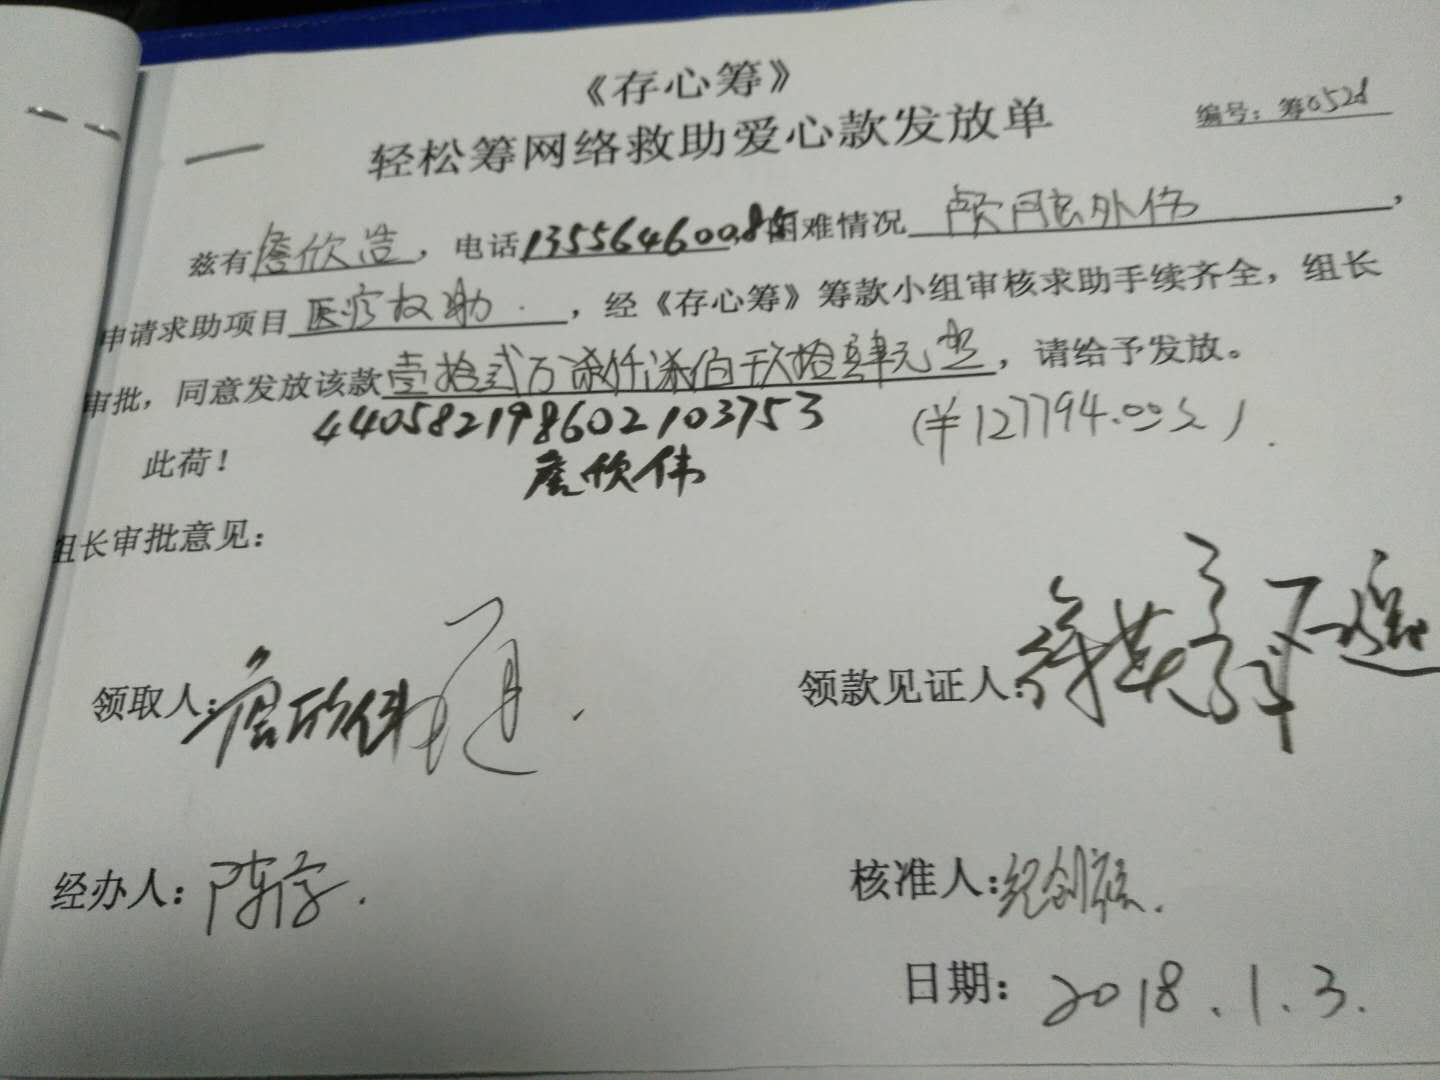 《存心筹》
轻松筹网络救助爱心款发放单
编号：筹0528
兹有詹欣浩，电话13556460085，困难情况颅内出外伤，
申请求助项目医疗救助，经《存心筹》筹款小组审核求助手续齐全，组长
审批，同意发放该款壹拾贰万柒仟柒佰玖拾肆元整，请给予发放。
440582198602103753 (￥127794.00元)
此荷！
詹欣伟
组长审批意见：
领取人：詹欣伟 领款见证人：
经办人：陈 核准人：
日期：2018.1.3.